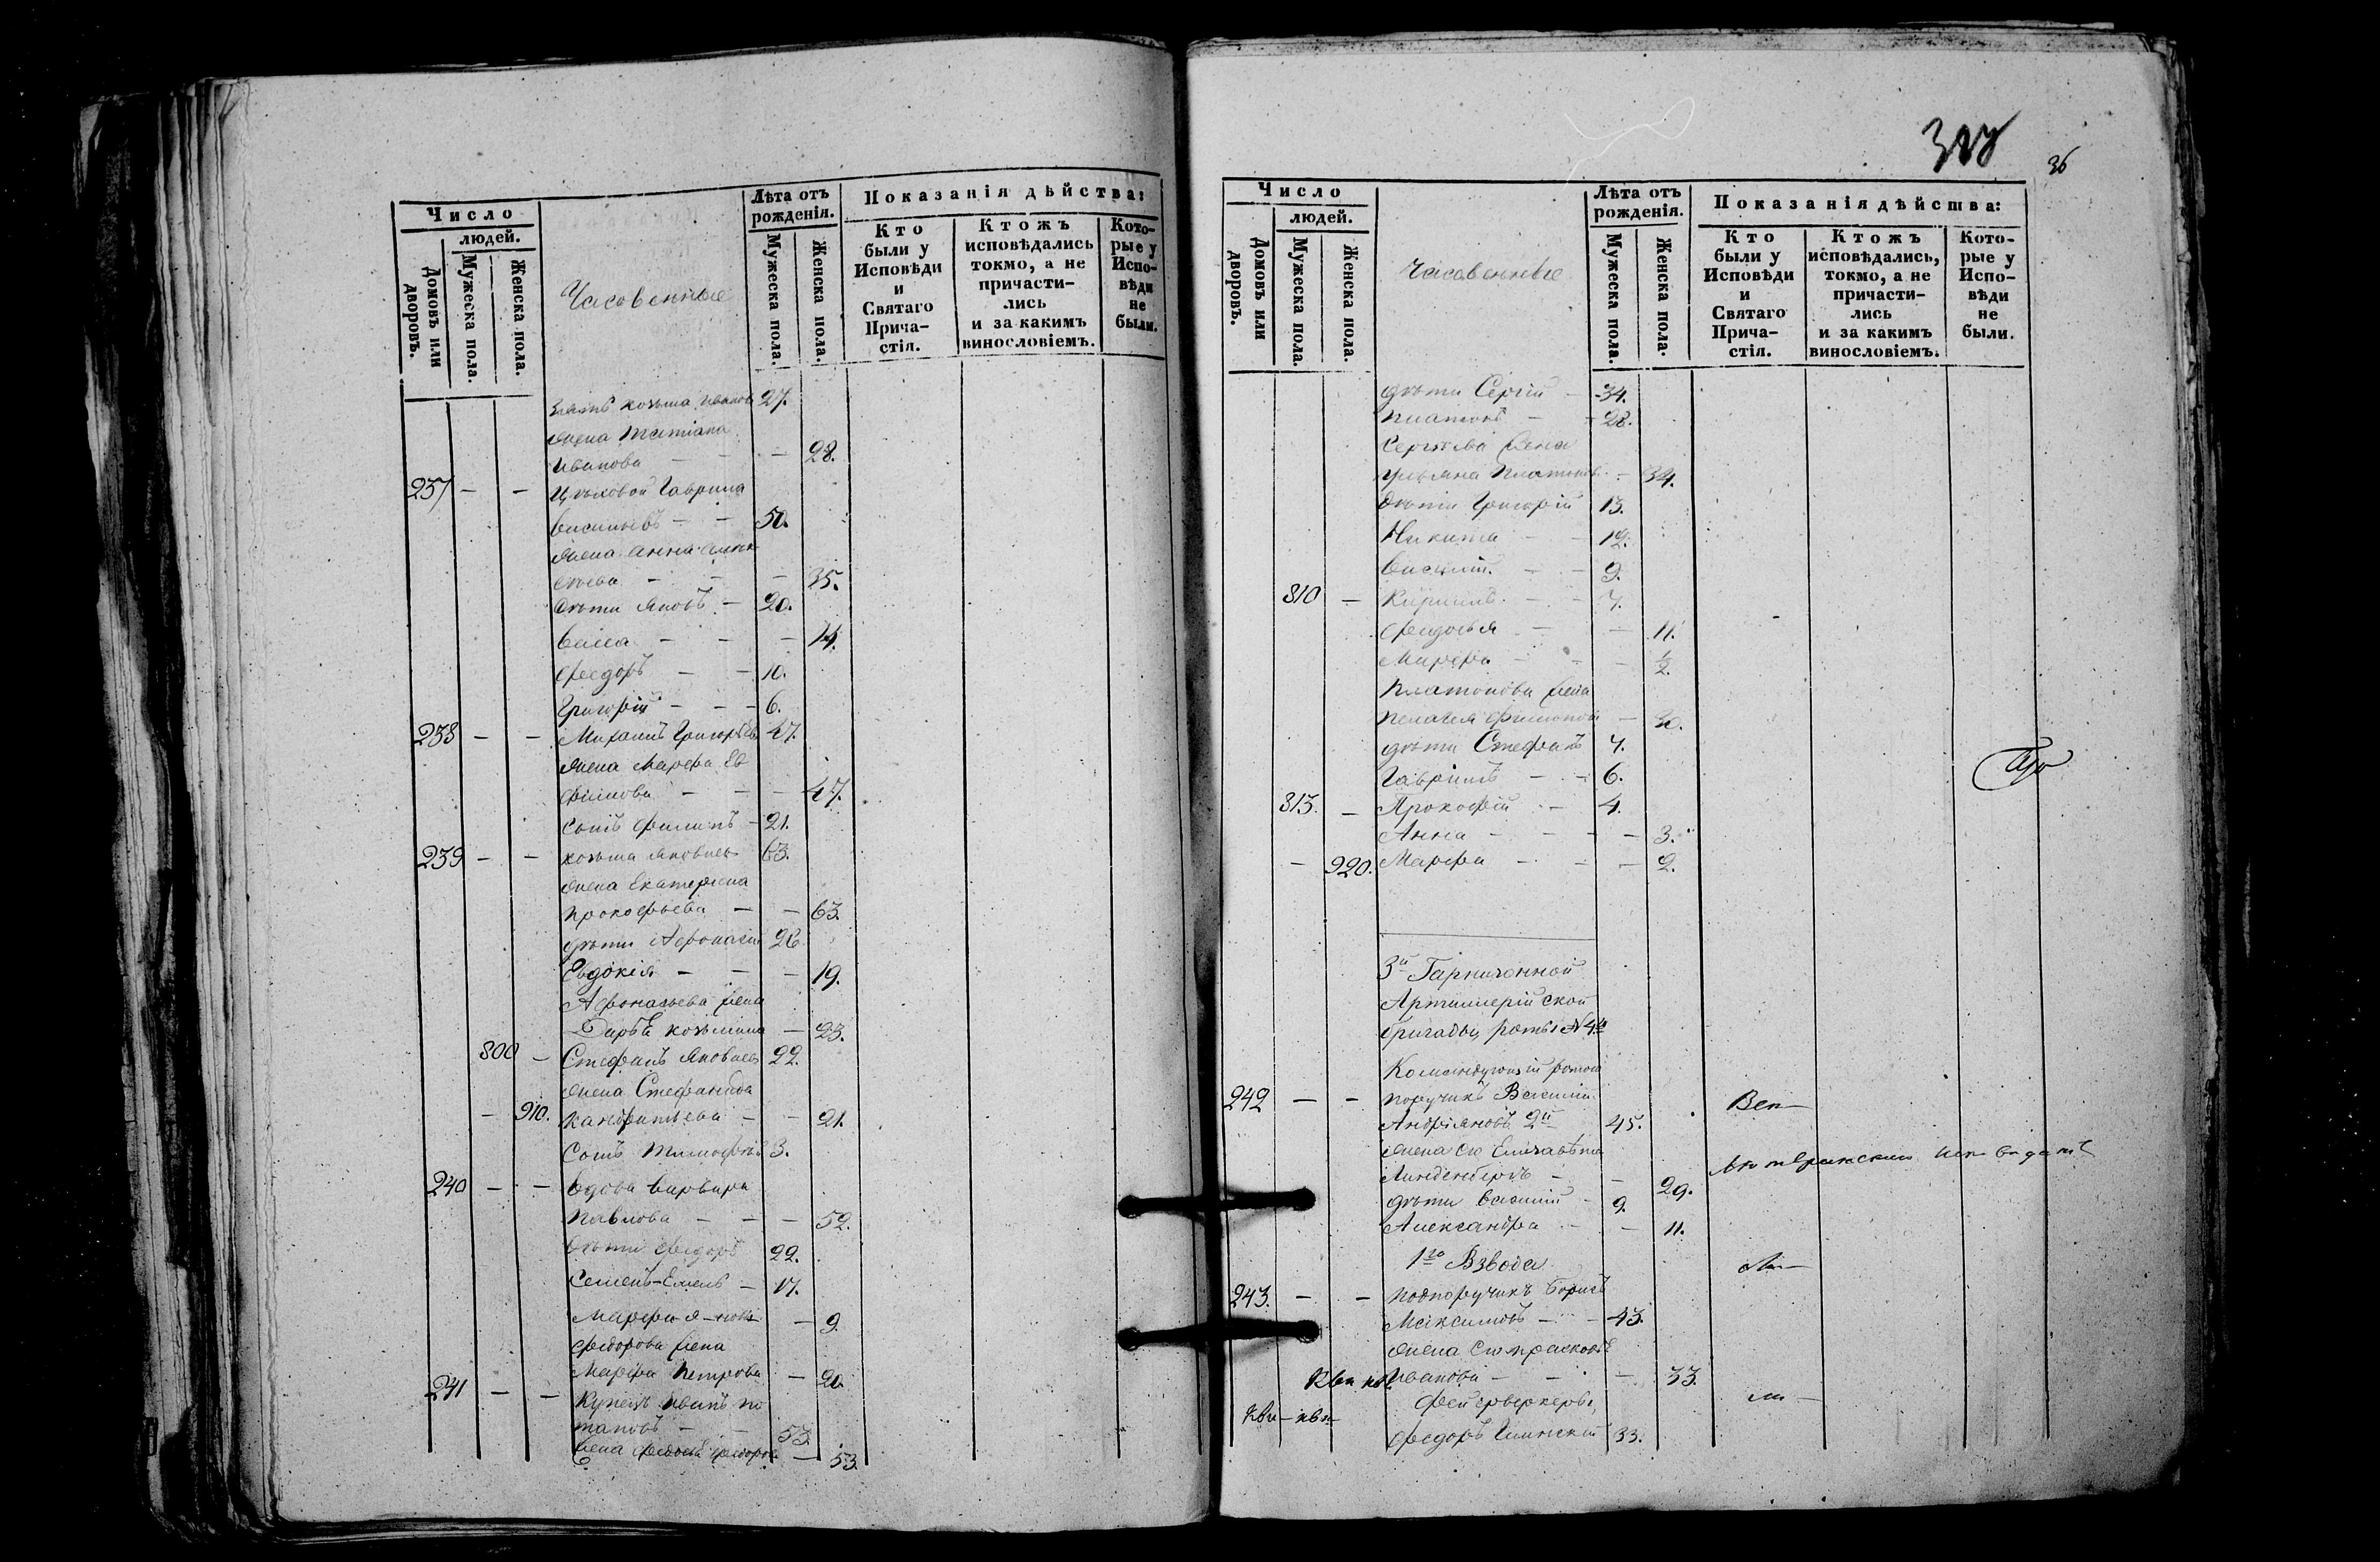 Число
людей.
Домовъ или дворовъ.
Мужеска пола.
Женска пола.
Часовенные
Лѣта отъ рожденія.
Мужеска пола.
Женска пола.
Показанія дѣйства:
Кто были у Исповѣди и Святаго Прича- стія.
Ктожъ исповѣдались токмо, а не причасти- лись и за какимъ винословіемъ.
Кото- рые у Испо- вѣди не были.
зять козьма Иванов 27.
жена Татіана
Иванова — — 28.
237 — — Цѣховой Гаврила
Васильевъ — — 50.
жена Анна Алек
сѣева — — — 35.
дѣти Яковъ — 20.
Васса — — — 14.
Феодоръ — — 10.
Григорій — — 6.
238 — — Михаилъ Григорьев 47.
жена Марфа Ев
фимова — — — 47.
сынъ Филипъ — 21.
239 — — козьма Яковлев 63.
жена Екатерина
прокофьева — — 63.
дѣти Афонасій 26.
Евдокія — — — 19.
Афонасьева жена
Дарья козьмина — 23.
800 — Стефанъ Яковлев 22.
жена Стефанида
— 910. кандратьева — — 21.
сынъ Тимофей 3.
240 — — вдова варвара
павлова — — — 52.
дѣти Феодоръ 22.
Семенъ — 17.
Марфа — 9.
Федорова жена
Марфа петрова — 20.
241 — — купецъ иванъ по
таповъ — — 53.
жена Федосья Федорова — 53.
36
Число
людей.
Домовъ или дворовъ.
Мужеска пола.
Женска пола.
Часовенные
Лѣта отъ рожденія.
Мужеска пола.
Женска пола.
Показанія дѣйства:
Кто были у Исповѣди и Святаго Прича- стія.
Ктожъ исповѣдались, токмо, а не причасти- лись и за какимъ винословіемъ.
Кото- рые у Испо- вѣди не были.
дѣти Сергій — 34.
платонъ — — 28.
Сергѣева жена
ульяна Платонов — 34.
дѣти Григорій 13.
Никита — — 12.
Василій — — 9.
810 — Кирилъ — — 7.
Феодосья — — 11.
Марфа — — — ½.
платонова жена
пелагея Филипова — 30.
дѣти Стефанъ 7.
Гавріилъ — — 6.
815. — Прокофій — 4.
Анна — — — — 3.
— 920. Марфа — — — 2.
3й Гарнизонной
Артиллерійской
бригады роты №4й
Командующій ротой
242 — — поручикъ Василій
Андріяновъ 2й 45.
жена ею Елизавета
Линденберхъ — — 29.
дѣти василій — 9.
Александра — — 11.
1го Взвода
243. — — подпоручикъ Борисъ
Максимовъ — — 43.
жена ею прасковья
Иванова — — — 33.
фейерверкеры
Федоръ Глинскій 33.